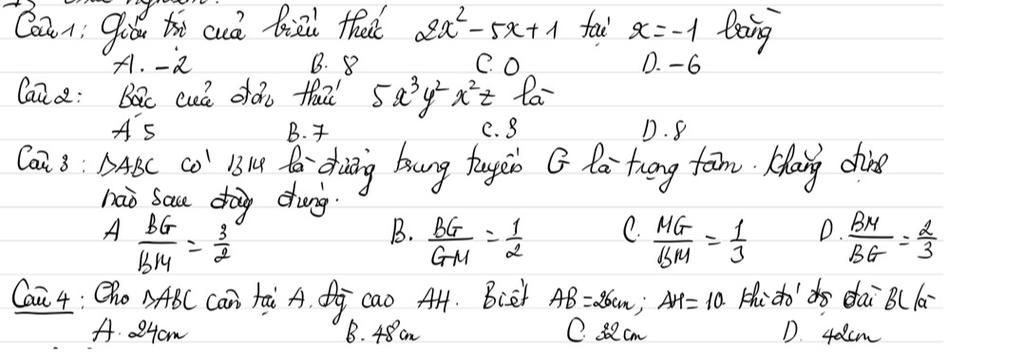 Câu 1: Giá trị của biểu thức 2x² - 5x + 1 tại x = -1 bằng
A. -2 B. 8 C. 0 D. -6
Câu 2: Bậc của đơn thức 5x³y² x²z là
A 5 B. 7 C. 3 D. 8
Câu 3: ΔABC có BM là đường trung tuyến G là trọng tâm. Khẳng định
nào sau đây đúng.
A BG/BM = 3/2 B. BG/GM = 1/2 C. MG/BM = 1/3 D. BM/BG = 2/3
Câu 4: Cho ΔABC cân tại A. Đg cao AH. Biết AB = 26cm; AH = 10 khi đó độ dài BC là
A. 24cm B. 48cm C. 32cm D. 42cm